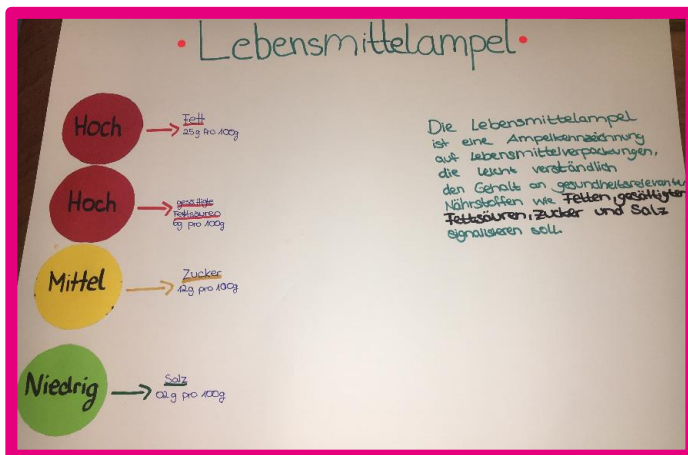 • Lebensmittelampel •
Hoch
Fett
25g Pro 100g
Hoch
gesättigte
Fettsäuren
6g pro 100g
Mittel
Zucker
12g pro 100g
Niedrig
Salz
02g pro 100g
Die Lebensmittelampel
ist eine Ampelkennzeichnung
auf Lebensmittelverpackungen,
die leicht verständlich
den Gehalt an gesundheitsrelevante
Nährstoffen wie Fetten, gesättigten
Fettsäuren, Zucker und Salz
signalisieren soll.